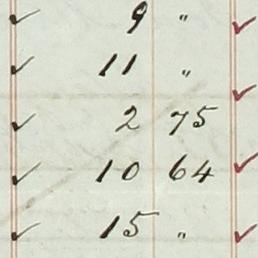 9 "
11 "
2 75
10 64
15 "